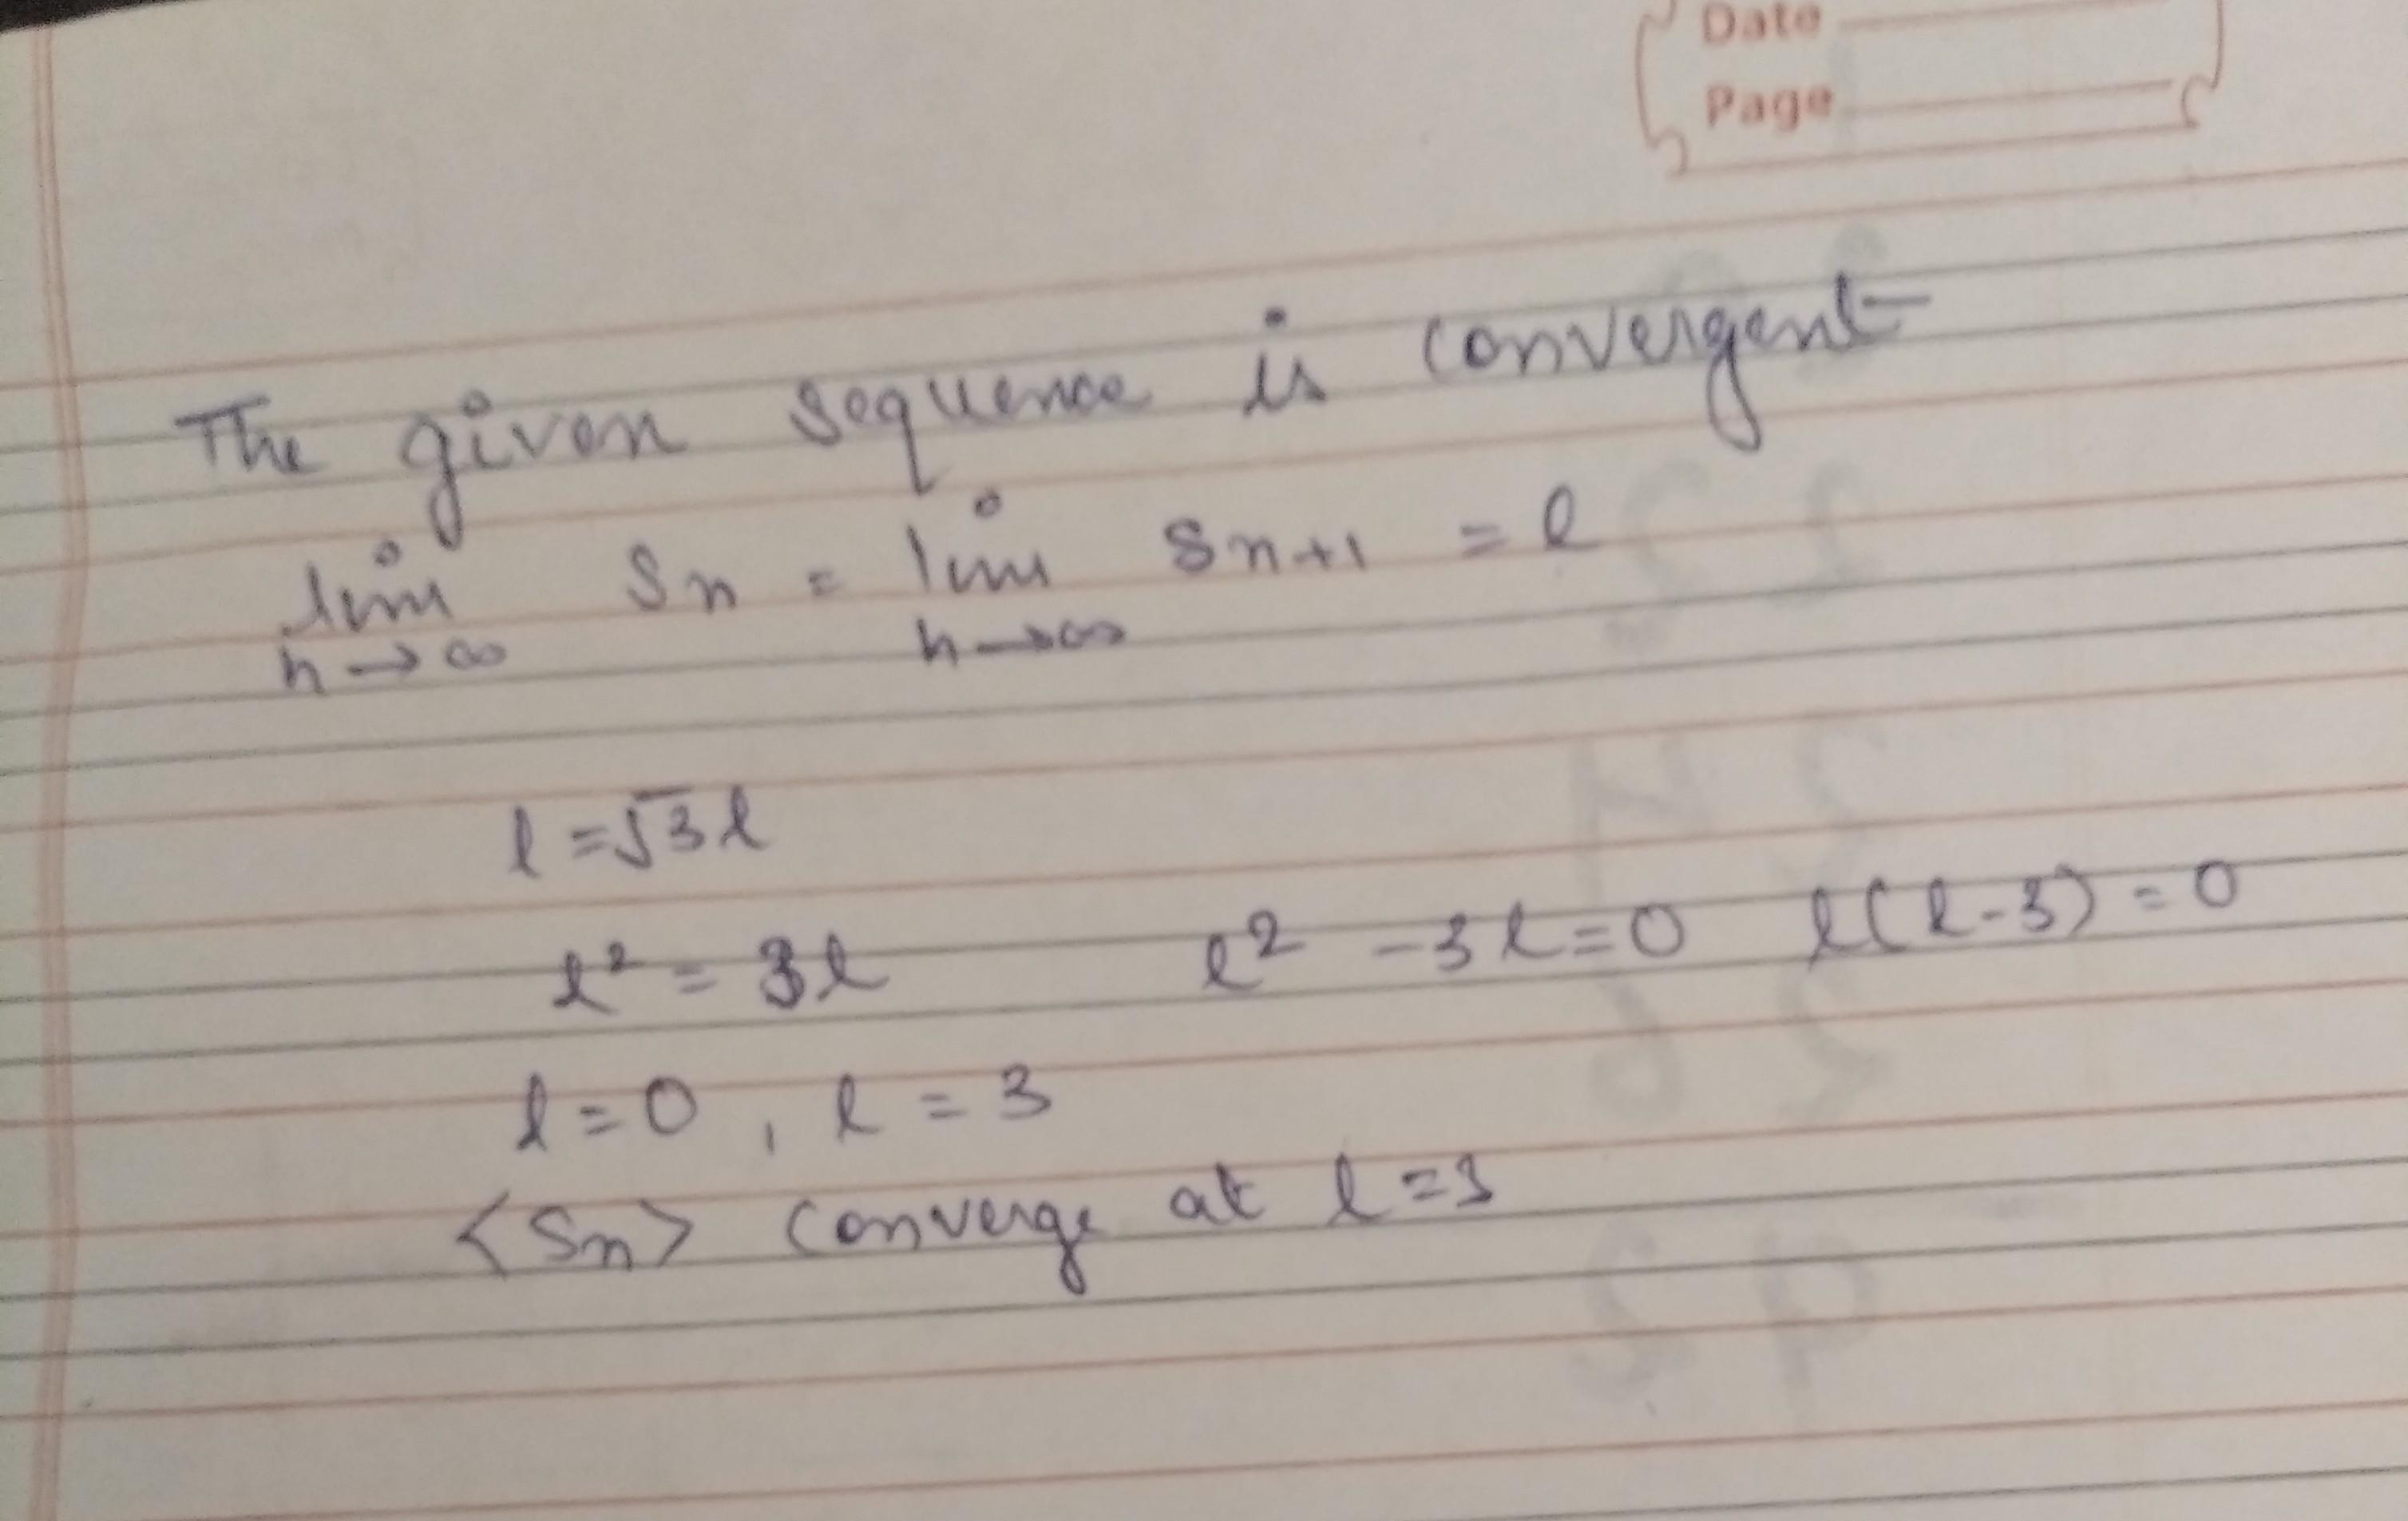 Date
Page
The given sequence is convergent
lim Sn = lim Sn+1 = l
n→∞ n→∞
l = √3l
l² = 3l l² - 3l = 0 l(l-3) = 0
l = 0 , l = 3
<Sn> converge at l = 3